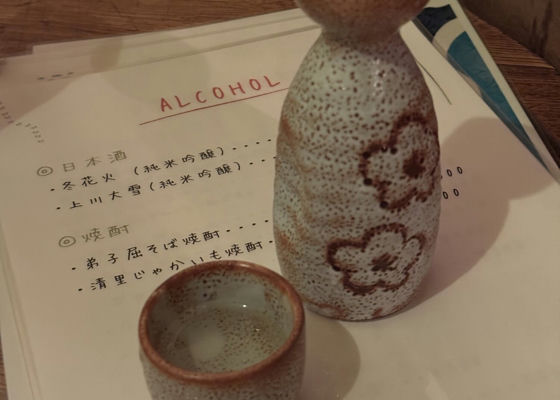 ALCOHOL
◎日本酒
・冬花火(純米吟醸)・・・・
・上川大雪(純米吟醸)・・・
◎焼酎
・弟子屈そば焼酎・・・・
・清里じゃがいも焼酎・